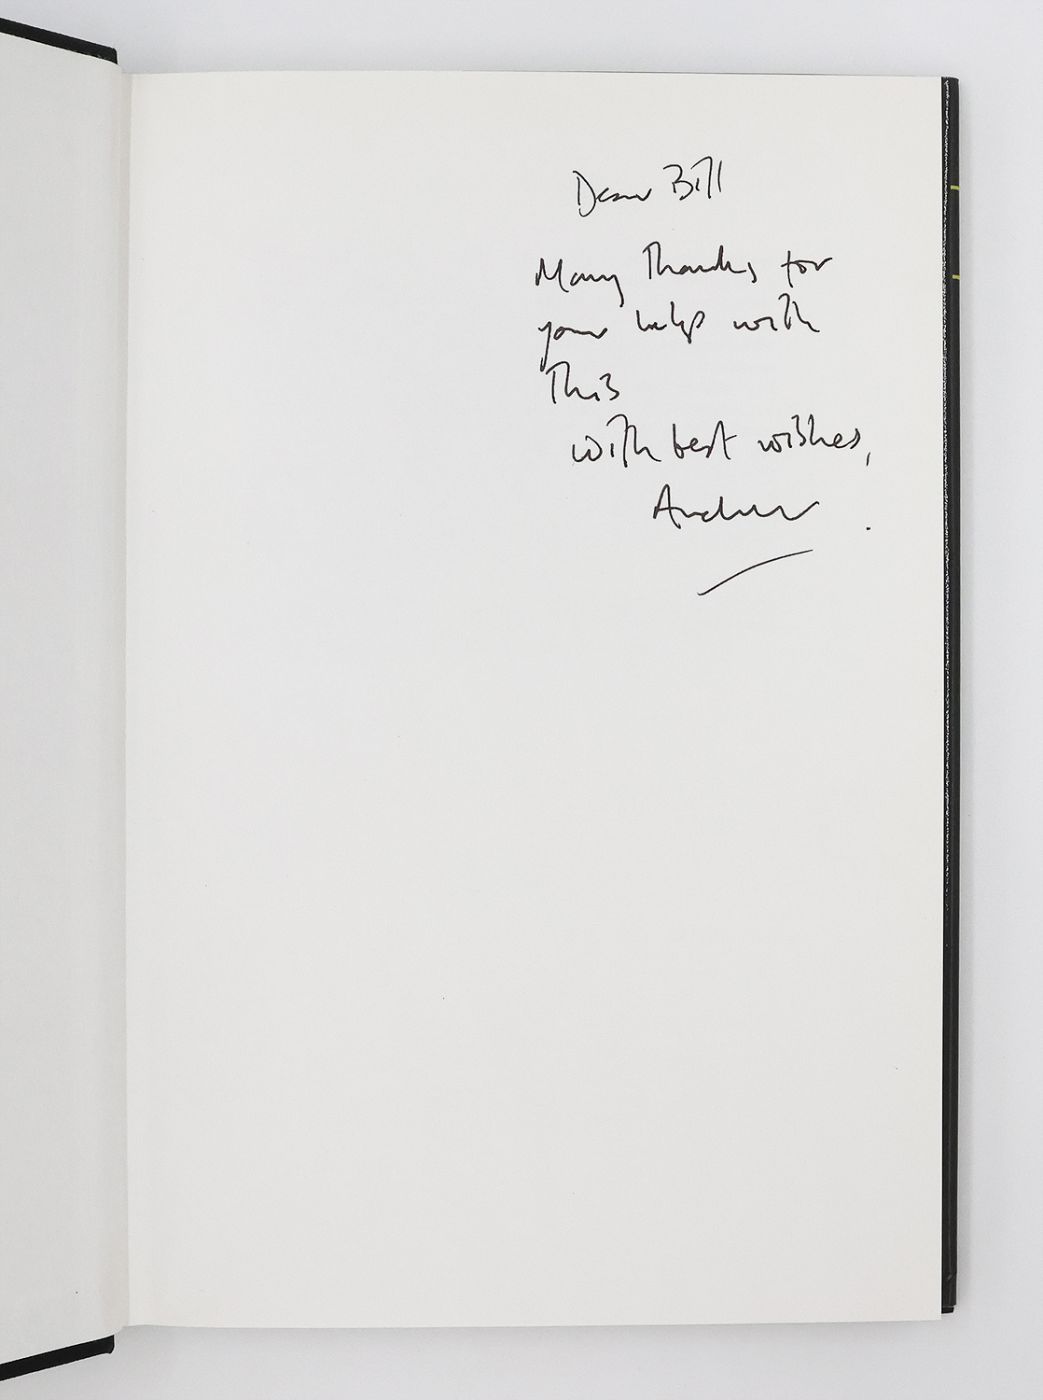 Dear Bill
Many Thanks for
your help with
This
with best wishes,
Andrew